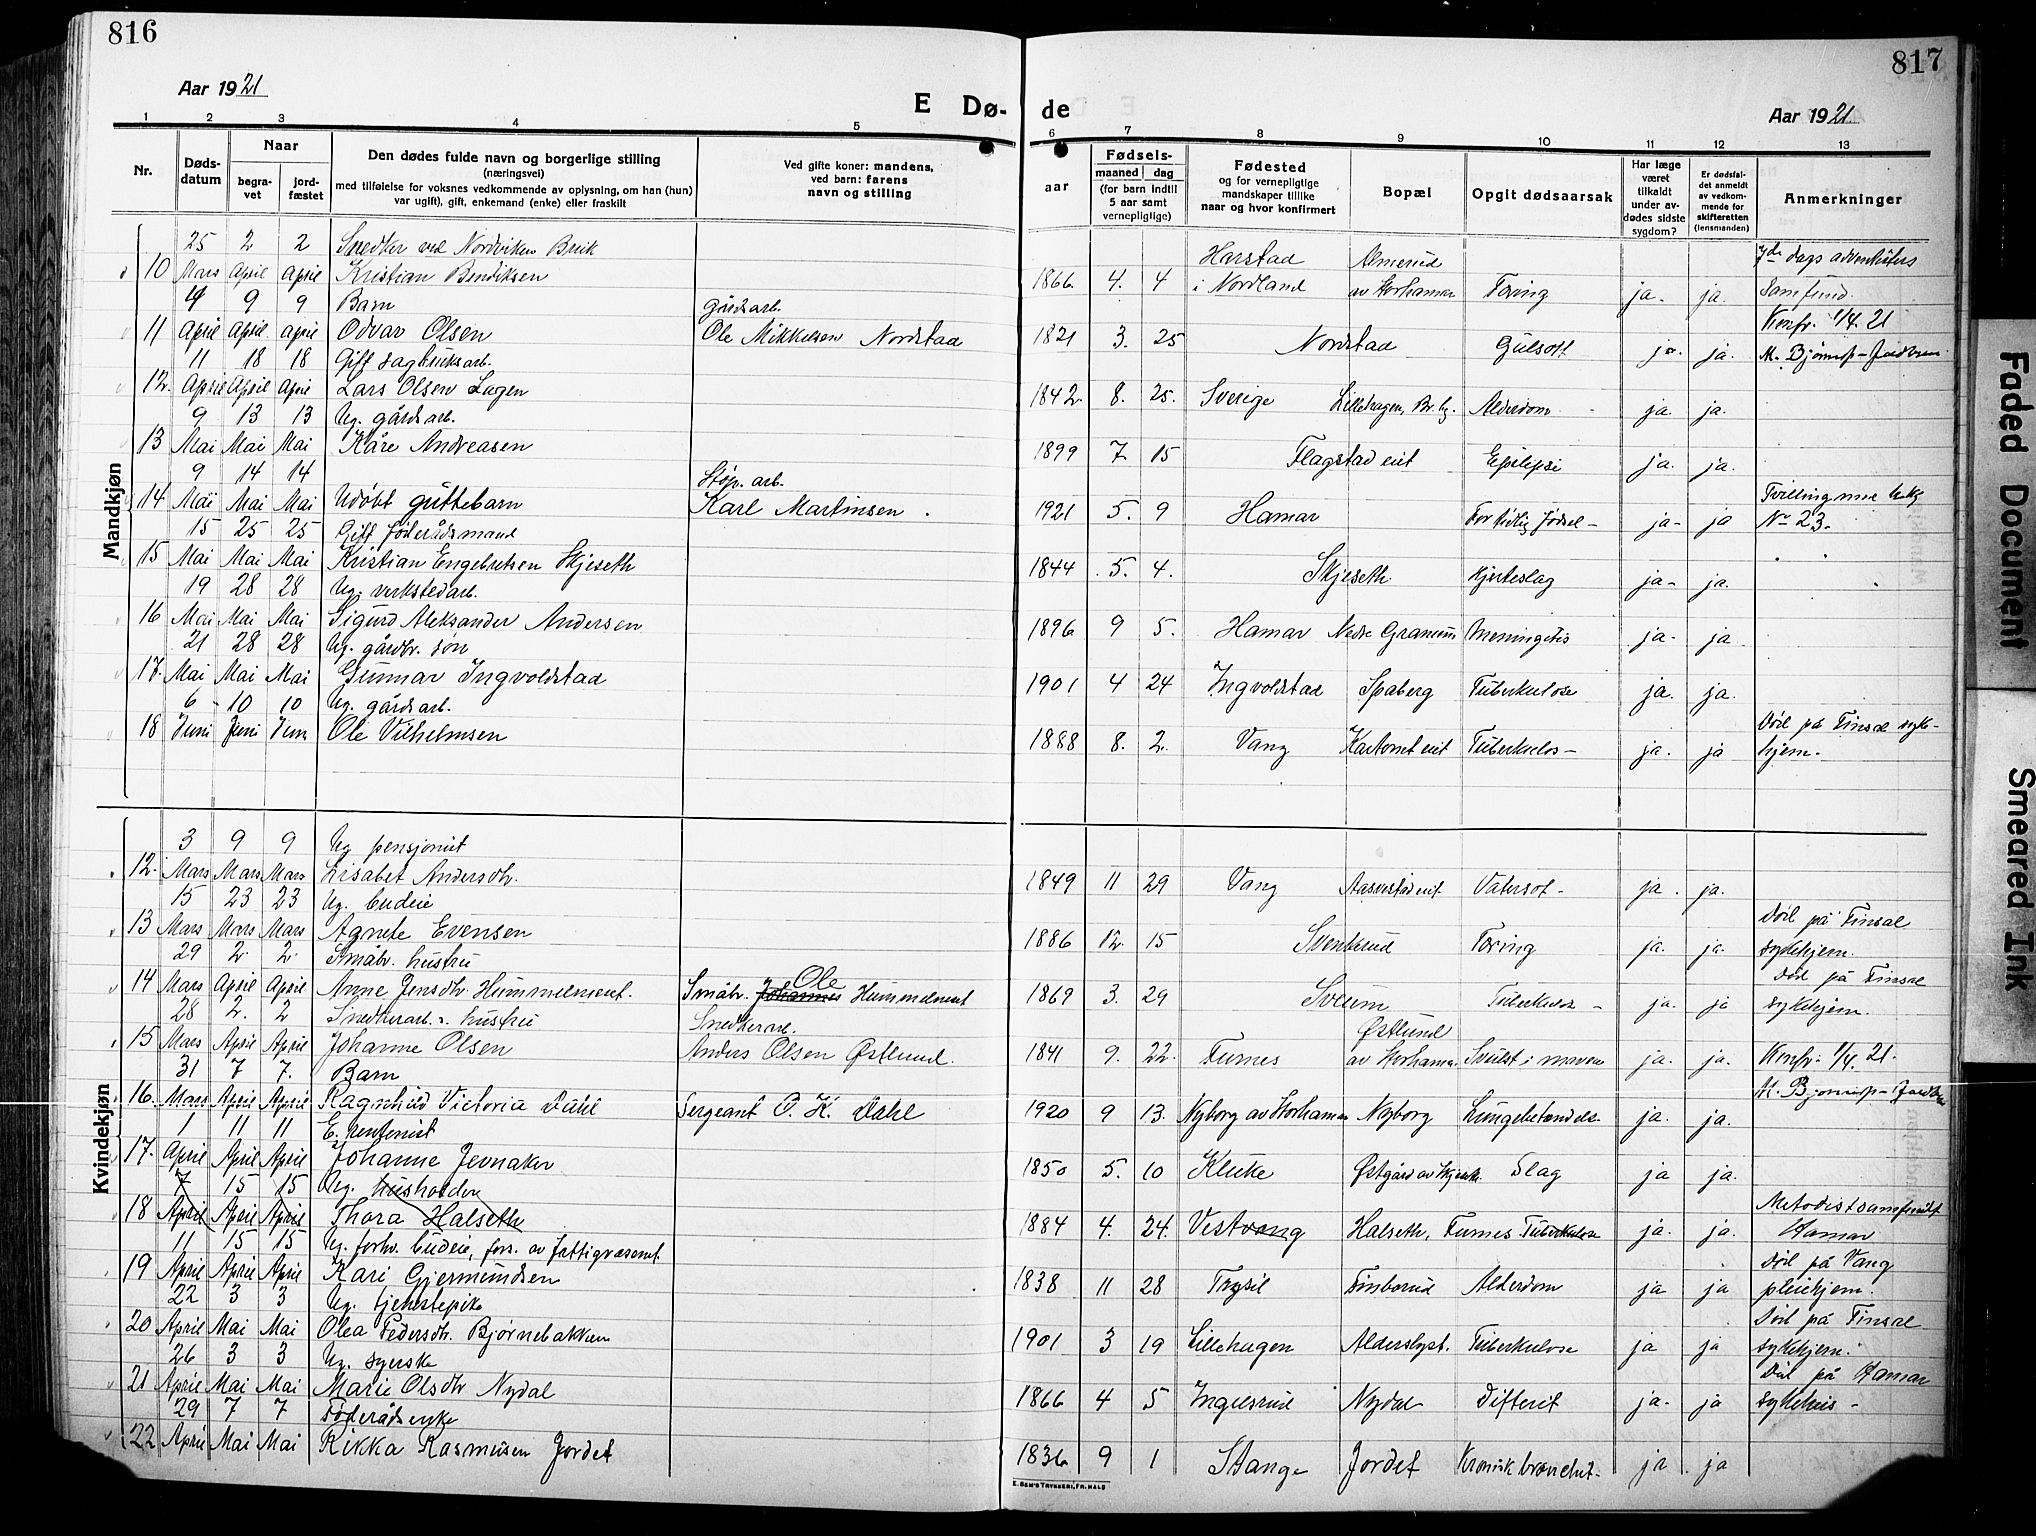 816
817
Aar 1921
E Dø-
de
Aar 1921.
1 2 3 4 5 6 7 8 9 10 11 12 13
Nr.
Døds-
datum
Naar
begra-
vet
jord-
fæstet
Den dødes fulde navn og borgerlige stilling
(næringsvei)
med tilføielse for voksnes vedkommende av oplysning, om han (hun)
var ugift), gift, enkemand (enke) eller fraskilt
Ved gifte koner: mandens,
ved barn: farens
navn og stilling
Fødsels-
aar
maaned dag
(for barn indtil
5 aar samt
vernepligtige)
Fødested
og for vernepligtige
mandskaper tillike
naar og hvor konfirmert
Bopæl
Opgit dødsaarsak
Har læge
været
tilkaldt
under av-
dødes sidste
sygdom?
Er dødsfal-
det anmeldt
av vedkom-
mende for
skifteretten
(lensmanden)
Anmerkninger
Mandkjøn
25 2 2 Snedker ved Nordviken Bruk Harstad Almerud 7de dags adventisters
10 Mars April April Kristian Bendiksen 1866 4. 4 i Nordland av Storhamar Tæring ja. ja. Samfund.
4 9 9 Barn Gårdsarb. Konfr. 1/4. 21
11 April April April Odvar Olsen Ole Mikkelsen Nordstad 1821 3. 25 Nordstad Gulsott ja. ja. M. Bjørnsp-Jacobsen
11 18 18 Gift sagbruksarb.
12. April April April Lars Olsen Lagen 1842 8. 25. Sverige Lillehagen, Br.bg. Alderdom ja ja.
9 13 13 Ug. gårdsarb.
13 Mai Mai Mai Kåre Andreasen 1899 7 15 Flagstad eit Epilepsi ja. ja.
9 14 14 Støp. arb. Tvilling med
14. Mai Mai Mai Udøbt guttebarn Karl Martinsen. 1921 5. 9 Hamar For tidlig fødsel- ja- ja No 23.
15 25 25 Gift føderådsmand
15 Mai Mai Mai Kristian Engebretsen Skjeseth 1844 5. 4. Skjeseth Hjerteslag ja- ja.
19 28 28 Ug. verkstedarb.
16 Mai Mai Mai Sigurd Aleksander Andersen 1896 9 5. Hamar Nedre Granerud Meningitis ja- ja
21 28 28 Ug. gårdbr. søn
17. Mai Mai Mai Gunnar Ingvoldstad 1901 4 24 Ingvoldstad Spaberg Tuberkulose ja. ja.
6 10 10 Ug. gårdsarb. Død på Finsal syke-
18 Juni Juni Juni Ole Vilhelmsen 1888 8. 2. Vang Kartomt eit Tuberkulos- ja. ja hjem.
Kvindekjøn
3 9 9 Ug pensjonist
12. Mars Mars Mars Lisabet Andersdtr. 1849 11 29 Vang Aasvestad eit Vatersot- ja ja.
15 23 23 Ug. budeie Død på Finsal
13 Mars Mars Mars Agnete Evensen 1886 12. 15 Svenkerud Tæring ja. ja. sykehjem.
29 2. 2. Småbr. hustru Ole Død på Finsal
14 Mars April April Anne Jensdtr. Hummelment. Småbr. Johannes Hummelment 1869 3. 29 Sveum Tuberkulose - ja. ja sykehjem.
28 2. 2 Snedkerarb. hustru Snedkerarb. Østlund
15 Mars April April Johanne Olsen Anders Olsen Østlund. 1841 9. 22. Furnes av Storhamar. Svulst i maven ja. ja. Konfr. 1/4. 21.
31 7 7. Barn M. Bjørnsp-Jacobsen
16. Mars April April Ragnhild Victoria Dahl Sergeant O. K. Dahl 1920 9 13. Nyborg av Storhamar Nyborg Lungebetændels. ja. ja.
1 11 11 E. rentenist
17. April April April Johanne Jevnaker 1850 5. 10 Kluke Østgård av Skjeseth. Slag ja ja.
7 15 15 Ug. husholder Metodistsamfundet
18 April April April Thora Halseth 1884 4. 24. Vestvang Halseth, Furnes Tuberkulose ja. ja. Hamar
11 15 15 Ug. forhv. budeie, fors. av fattigvæsenet Død på Vang
19 April April April Kari Gjermundsen 1838 11 28 Trysil Finborud Alderdom ja ja pleiehjem.
22 3 3 Ug. tjenstepike Død på Finsal
20 April Mai Mai Olea Pedersdtr. Bjørnebakken 1901 3 19 Lillehagen Alderslyst. Tuberkulose ja ja sykehjem.
26 3 3 Ug. syerske Død på Hamar
21 April Mai Mai Marie Olsdtr Nydal 1866 4 5 Ingelsrud Nydal Difterit ja- ja sykehus -
29 7 7 Føderådsenke
22 April Mai Mai Rikka Rasmusen Jordet 1836 9 1 Stange Jordet Kronisk bronchit- ja ja
E. SEM'S TRYKKERI, FR. HALD
Faded Document
Smeared Ink